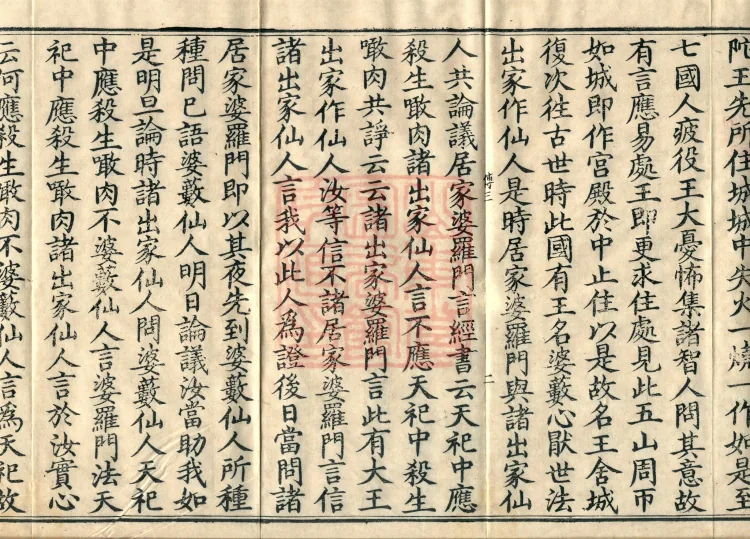 陀王先所住城城中失火一燒一作如是至
七國人疲役王大憂怖集諸智人問其意故
有言應易處王即更求住處見此五山周帀
如城即作宮殿於中止住以是故名王舍城
復次往古世時此國有王名婆藪心厭世法
出家作仙人是時居家婆羅門與諸出家仙
傳三 二
人共論議居家婆羅門言經書云天祀中應
殺生噉肉諸出家仙人言不應天祀中殺生
噉肉共諍云云諸出家婆羅門言此有大王
出家作仙人汝等信不諸居家婆羅門言信
諸出家仙人言我以此人為證後日當問諸
居家婆羅門即以其夜先到婆藪仙人所種
種問已語婆藪仙人明日論議汝當助我如
是明旦論時諸出家仙人問婆藪仙人天祀
中應殺生噉肉不婆藪仙人言婆羅門法天
祀中應殺生噉肉諸出家仙人言於汝實心
云何應殺生噉肉不婆藪仙人言為天祀故